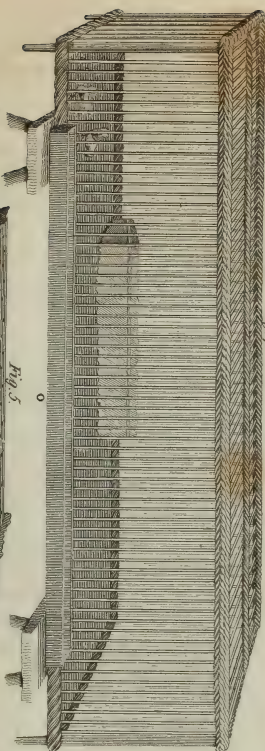 Fig. 5